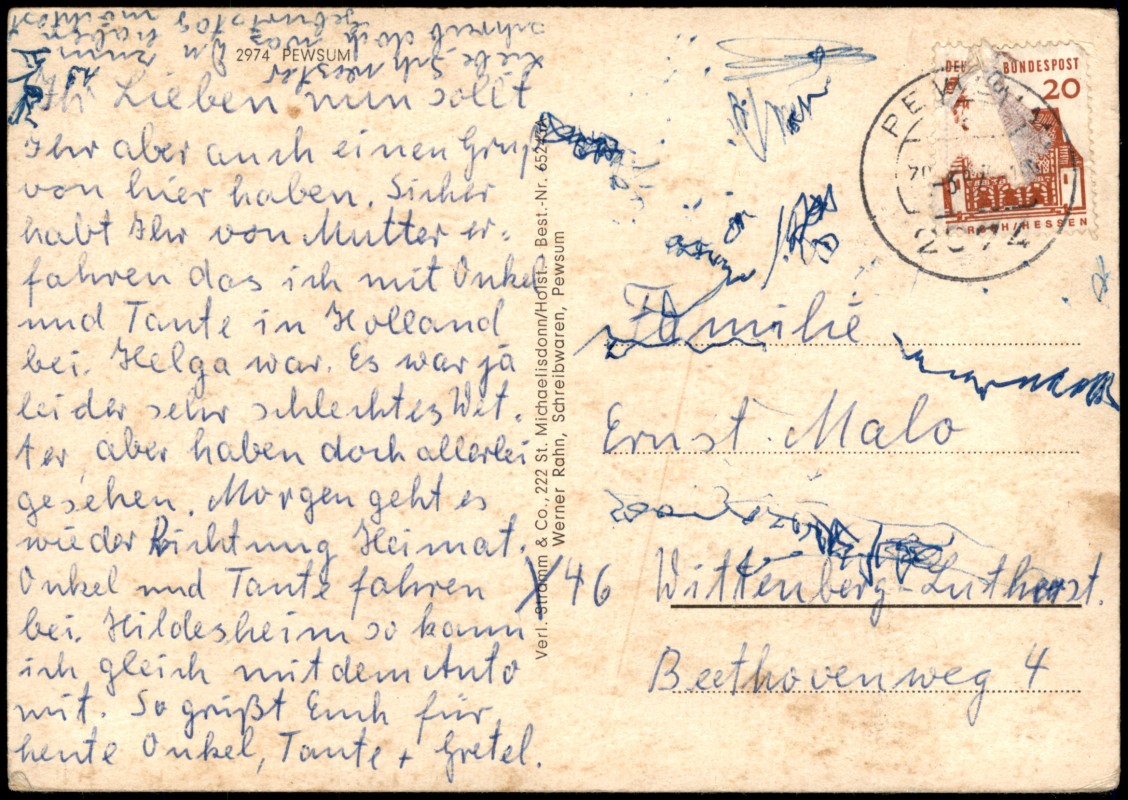 2974 PEWSUM
Liebe Schwester
schreib doch was Du
zum
Geburtstag haben
möchtest
Ihr Lieben nun sollt
Ihr aber auch einen Gruß
von hier haben. Sicher
habt Ihr von Mutter er-
fahren das ich mit Onkel
und Tante in Holland
bei. Helga war. Es war ja
leider sehr schlechtes Wet-
ter, aber haben doch allerlei
gesehen. Morgen geht es
wieder Richtung Heimat.
Onkel und Tante fahren
bei. Hildesheim so kann
ich gleich mit dem Auto
mit. So grüßt Euch für
heute Onkel, Tante + Gretel.
Verl. Stramm & Co., 222 St. Michaelisdonn/Holst. - Best.-Nr.
Werner Rahn, Schreibwaren, Pewsum
BUNDESPOST
20
LORSCH/HESSEN
PEWSUM
2974
Familie
Ernst. Malo
X 46 Wittenberg-Lutherst.
Beethovenweg 4